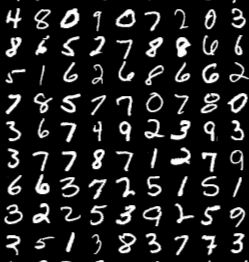 4 8 0 9 0 7 2 0 3
8 6 5 2 7 8 8 6 6
5 1 6 2 6 8 6 6 2
7 8 5 7 7 0 7 8 0
3 6 7 4 9 2 3 9 3
3 7 7 8 7 1 2 7 9
6 6 3 7 2 5 1 5 1
3 2 2 5 3 9 2 5 9
3 5 1 3 8 3 7 7 3